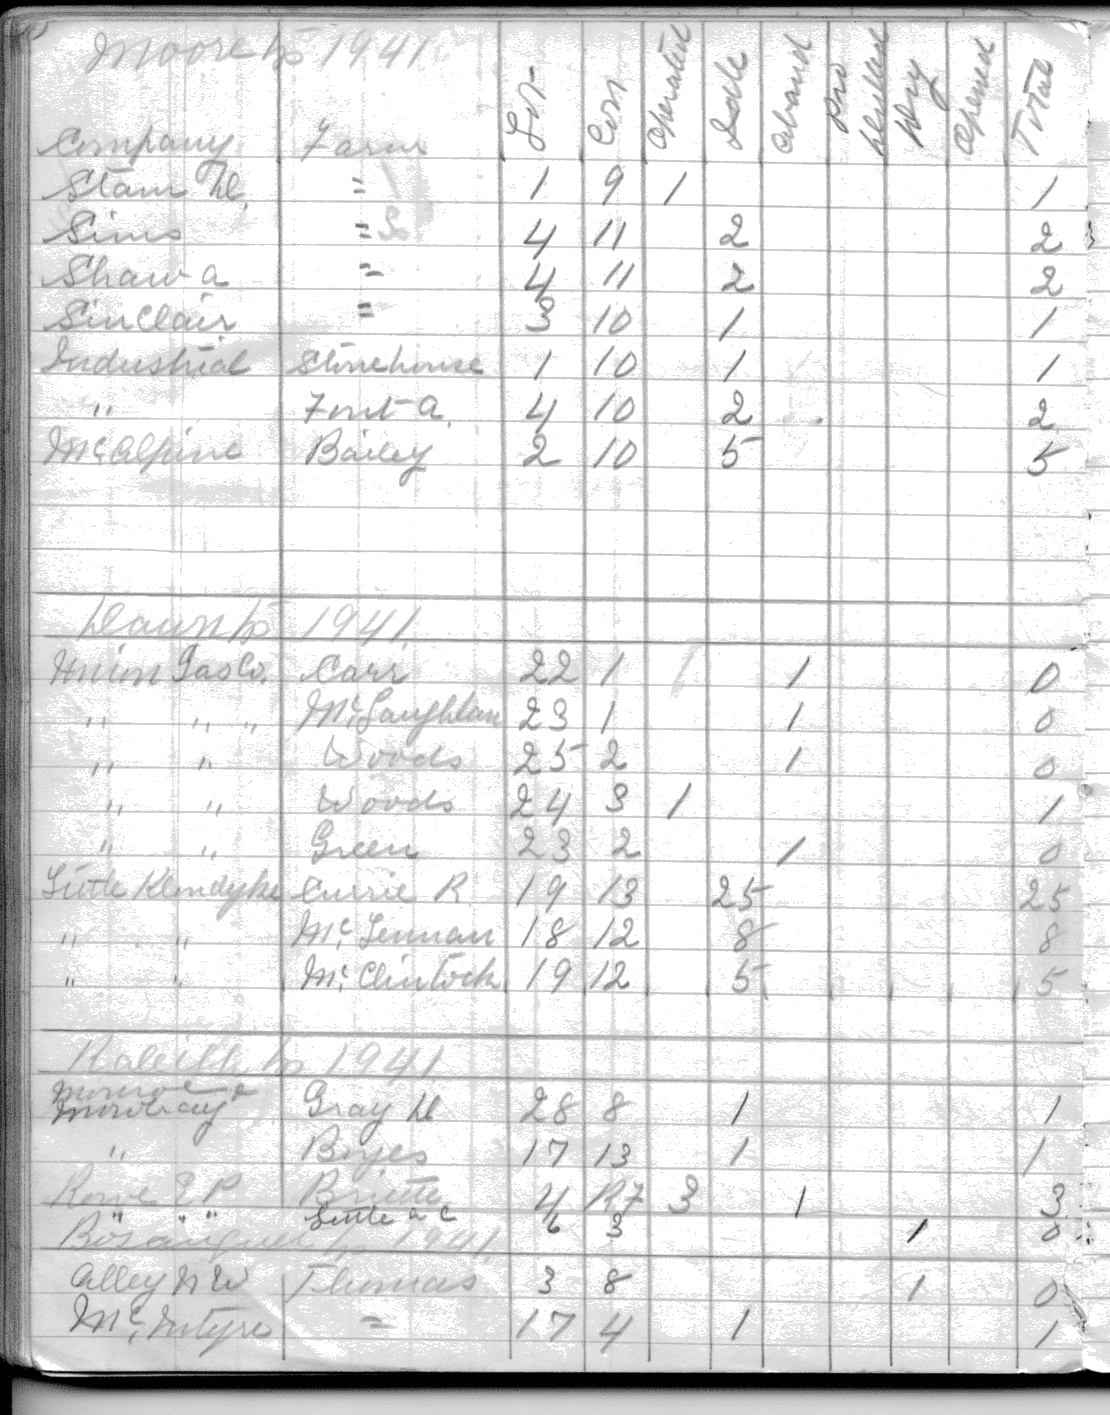 Moore tp 1941
Company Farm Lot Con Operated Idle Aband Pro Drilled Dry Opened Total
Stam D. = 1 9 1 1
Sims = 4 11 2 2
Shaw a = 4 11 2 2
Sinclair = 3 10 1 1
Industrial Stonehouse 1 10 1 1
" Font a. 4 10 2 2
McAlpine Bailey 2 10 5 5
Dawn tp 1941
Union Gas Co. Carr 22 1 1 0
" " " McLaughlan 23 1 1 0
" " Woods 25 2 1 0
" " Woods 24 3 1 1
" " Green 23 2 1 0
Little Klondyke Currie R 19 13 25 25
" " McLennan 18 12 8 8
" " McClintock 19 12 5 5
Raleith tp 1941
Monroe &
Mowbray Gray D 28 8 1 1
" Boyes 17 13 1 1
Rowe E P Briette 4 R7 3 1 3
" " " Little a c 6 3 1 0
Bosanquet tp 1941
Alley N W Thomas 3 8 1 0
McIntyre = 17 4 1 1